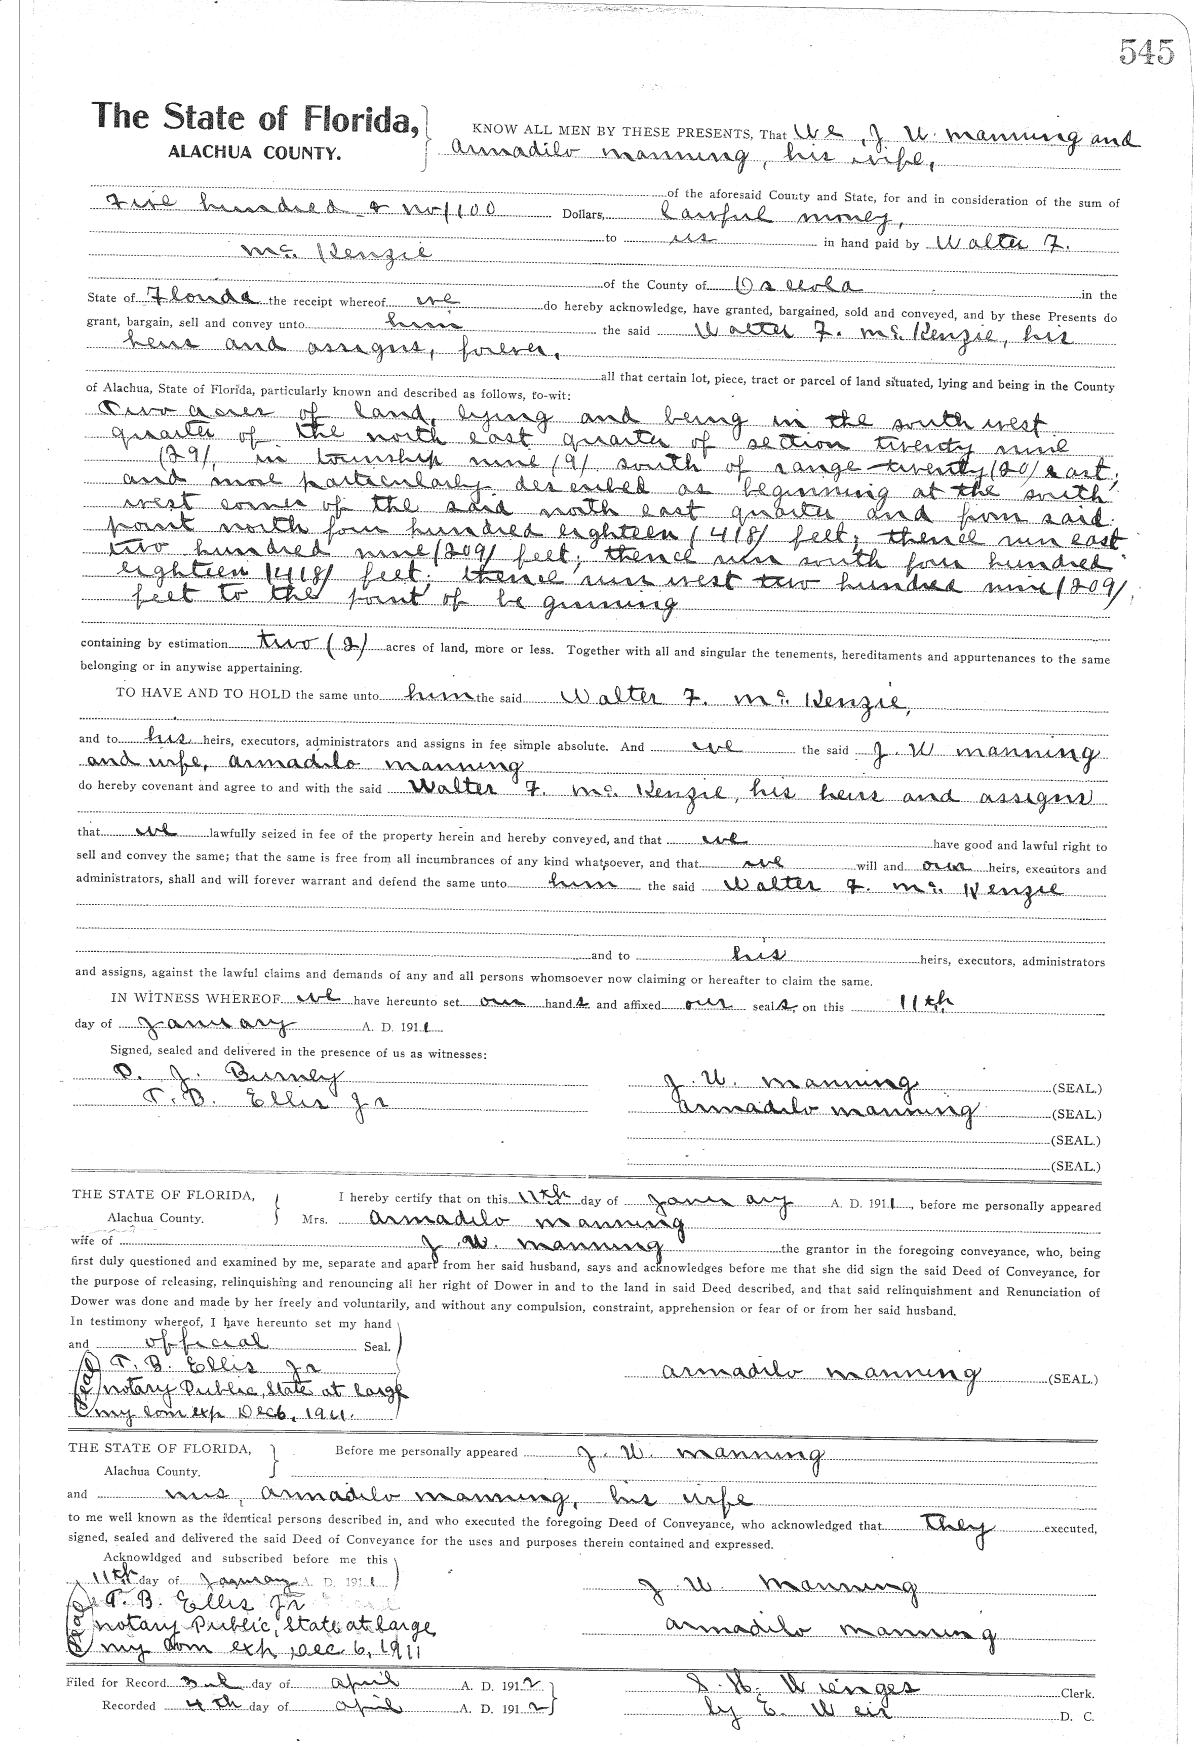 545
The State of Florida,
ALACHUA COUNTY.
KNOW ALL MEN BY THESE PRESENTS, That We, J. W. Manning and
Armadilo Manning, his wife,
of the aforesaid County and State, for and in consideration of the sum of
Five hundred & no/100 Dollars, lawful money,
to us in hand paid by Walter F.
McKenzie
of the County of Osceola in the
State of Florida the receipt whereof we do hereby acknowledge, have granted, bargained, sold and conveyed, and by these Presents do
grant, bargain, sell and convey unto him the said Walter F. McKenzie, his
heirs and assigns, forever,
all that certain lot, piece, tract or parcel of land situated, lying and being in the County
of Alachua, State of Florida, particularly known and described as follows, to-wit:
Two acres of land, lying and being in the south west
quarter of the north east quarter of section twenty nine
(29), in township nine (9) south of range twenty (20) east,
and more particularly described as beginning at the south
west corner of the said north east quarter and from said
point north four hundred eighteen (418) feet; thence run east
two hundred nine (209) feet; thence run south four hundred
eighteen (418) feet; thence run west two hundred nine (209)
feet to the point of beginning
containing by estimation two (2) acres of land, more or less. Together with all and singular the tenements, hereditaments and appurtenances to the same
belonging or in anywise appertaining.
TO HAVE AND TO HOLD the same unto him the said Walter F. McKenzie,
and to his heirs, executors, administrators and assigns in fee simple absolute. And we the said J. W Manning
and wife, Armadilo Manning
do hereby covenant and agree to and with the said Walter F. McKenzie, his heirs and assigns
that we lawfully seized in fee of the property herein and hereby conveyed, and that we have good and lawful right to
sell and convey the same; that the same is free from all incumbrances of any kind whatsoever, and that we will and our heirs, executors and
administrators, shall and will forever warrant and defend the same unto him the said Walter F. McKenzie
and to his heirs, executors, administrators
and assigns, against the lawful claims and demands of any and all persons whomsoever now claiming or hereafter to claim the same.
IN WITNESS WHEREOF we have hereunto set our hands and affixed our seals, on this 11th
day of January A. D. 1911
Signed, sealed and delivered in the presence of us as witnesses:
P. J. Burney J. W. Manning (SEAL.)
T. B. Ellis Jr Armadilo Manning (SEAL.)
(SEAL.)
(SEAL.)
THE STATE OF FLORIDA,
Alachua County.
I hereby certify that on this 11th day of January A. D. 1911, before me personally appeared
Mrs. Armadilo Manning
wife of J. W. Manning the grantor in the foregoing conveyance, who, being
first duly questioned and examined by me, separate and apart from her said husband, says and acknowledges before me that she did sign the said Deed of Conveyance, for
the purpose of releasing, relinquishing and renouncing all her right of Dower in and to the land in said Deed described, and that said relinquishment and Renunciation of
Dower was done and made by her freely and voluntarily, and without any compulsion, constraint, apprehension or fear of or from her said husband.
In testimony whereof, I have hereunto set my hand
and official Seal.
T. B. Ellis Jr Armadilo Manning (SEAL.)
Notary Public, State at large
My com exp Dec 6, 1911.
THE STATE OF FLORIDA,
Alachua County.
Before me personally appeared J. W. Manning
and Mrs, Armadilo Manning, his wife
to me well known as the identical persons described in, and who executed the foregoing Deed of Conveyance, who acknowledged that they executed,
signed, sealed and delivered the said Deed of Conveyance for the uses and purposes therein contained and expressed.
Acknowldged and subscribed before me this
11th day of January A. D. 1911 J W Manning
T. B. Ellis Jr
Notary Public, State at large Armadilo Manning
My com exp Dec 6, 1911
Filed for Record 3rd day of April A. D. 1912 S. H. Wienges Clerk.
Recorded 4th day of April A. D. 1912 by E. Weir D. C.